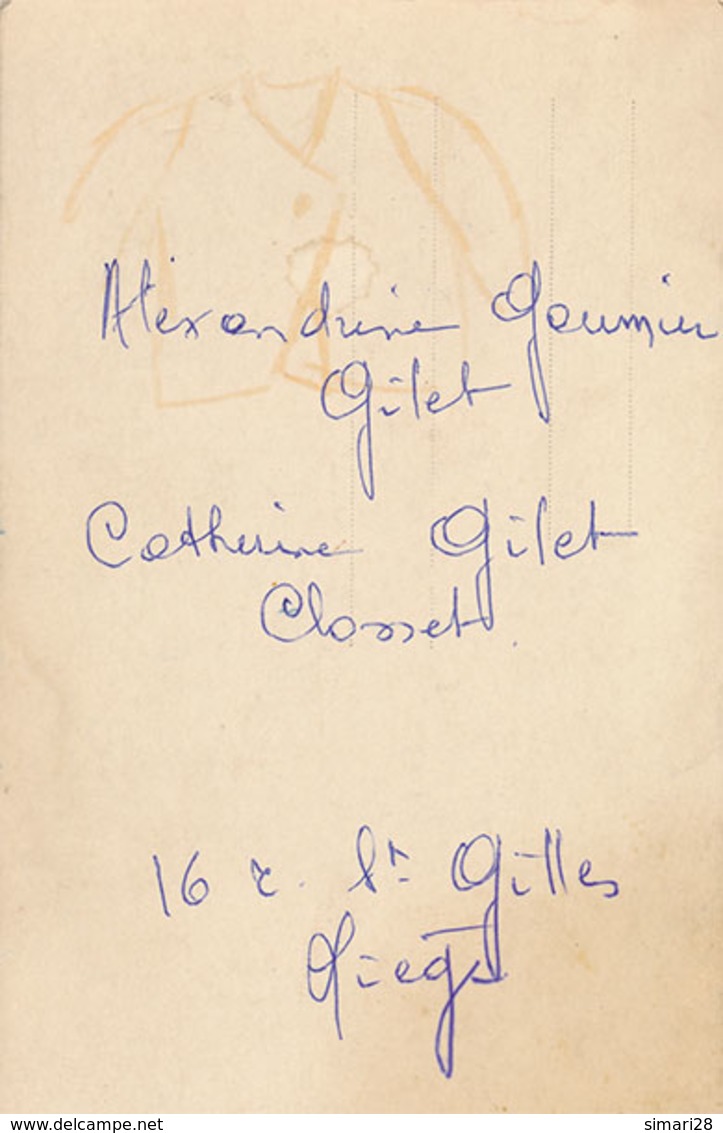 Alexandrine Gaumier
Gilet
Catherine Gilet
Closset
16 r. St Gilles
Liège
www.delcampe.net
simari28